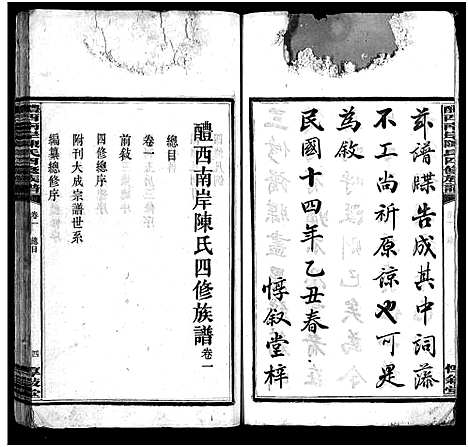 茲譜牒告成其中詞藻
不工尚祈原諒也可是
為敘
民國十四年乙丑春
惇叙堂梓
醴西南岸陳氏四修族譜 卷一
總目
卷一
前敍
四修總序
附刊大成宗譜世系
編纂總修序
醴西南岸陳氏四修族譜
卷一 總目
四